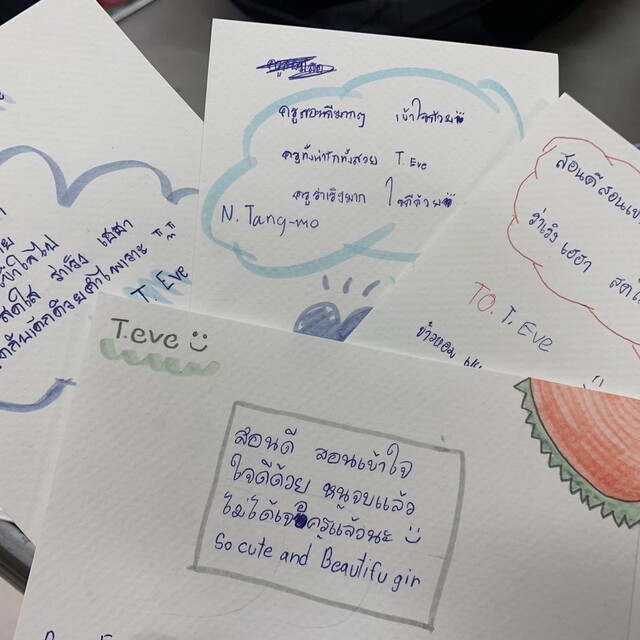 ครูสอนดีมากๆ เข้าใจด้วย
ครูทั้งน่ารักทั้งสวย T. Eve
ครูร่าเริงมาก ใจดีด้วย
N. Tang-mo
เข้าใจไป
สดใส ร่าเริง เฮฮา
T. Eve
สอนดี สอนเข้า
ร่าเริง เฮฮา สดใ
TO. T. Eve
T.eve
สอนดี สอนเข้าใจ
ใจดีด้วย หนูจบแล้ว
ไม่ได้เจอครูแล้วนะ
So cute and Beautifu girl